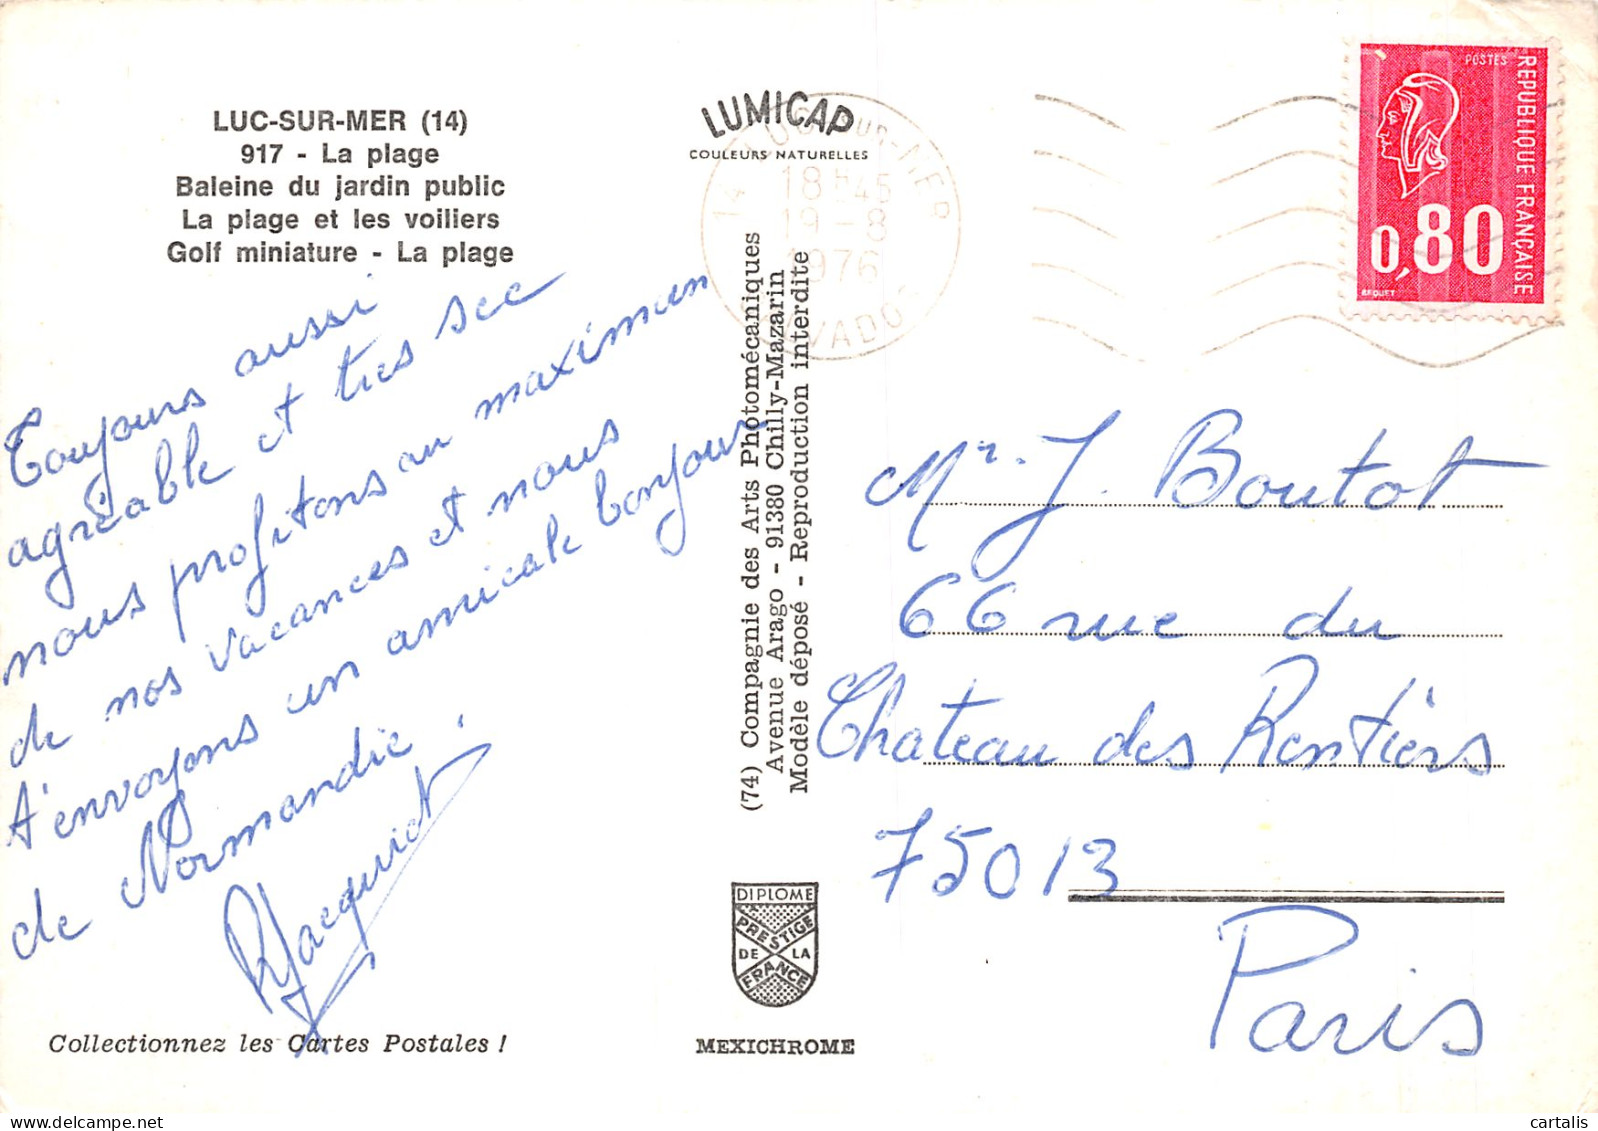 LUC-SUR-MER (14)
917 - La plage
Baleine du jardin public
La plage et les voiliers
Golf miniature - La plage
Toujours aussi
agréable et tres sec
nous profitons au maximum
de nos vacances et nous
t'envoyons un amicale bonjour
de Normandie.
Jacquet
Collectionnez les Cartes Postales !
LUMICAP
COULEURS NATURELLES
(74) Compagnie des Arts Photomécaniques
Avenue Arago - 91380 Chilly-Mazarin
Modèle déposé - Reproduction interdite
DIPLOME
PRESTIGE
DE LA
FRANCE
MEXICHROME
14 LUC-SUR-MER
18H45
19-8
1976
CALVADOS
POSTES
REPUBLIQUE FRANÇAISE
0,80
BEQUET
Mr. J. Boutot
66 rue du
Chateau des Rentiers
75013
Paris
cartalis.com